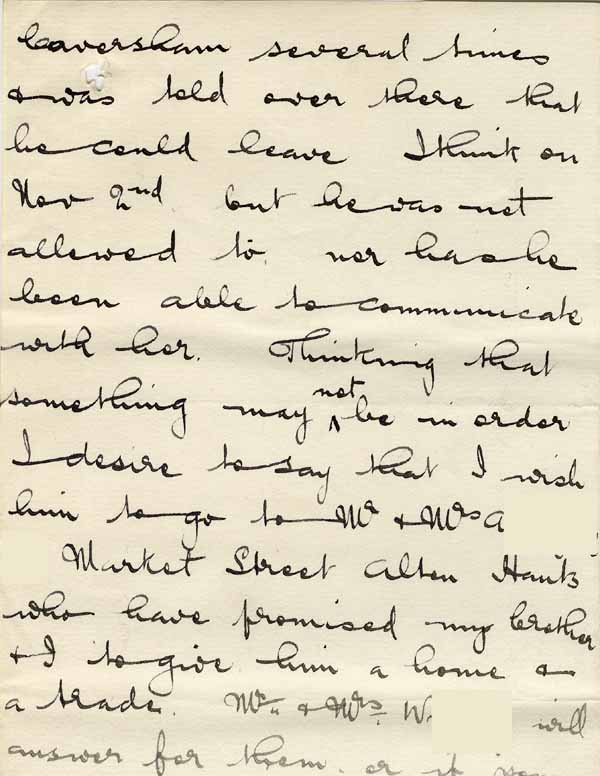 Caversham several times
& was told over there that
he could leave I think on
Nov 2nd. but he was not
allowed to. nor has he
been able to communicate
with her. Thinking that
something may not be in order
I desire to say that I wish
him to go to Mr & Mrs A
Market Street Alton Hants
who have promised my brother
& I to give him a home &
a trade. Mr. & Mrs. W. will
answer for them. or if you